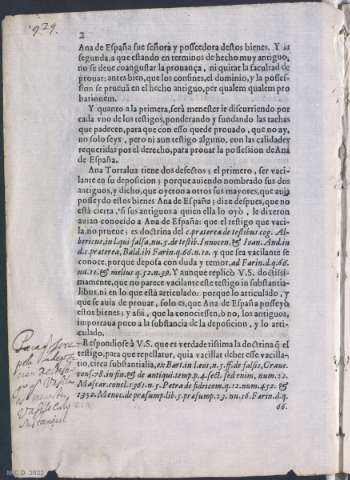 1929.
2
Ana de España fue señora y posseedora destos bienes. Y la
segunda, a que estando en terminos de hecho muy antiguo,
no se deue coangustar la prouança, ni quitar la facultad de
prouar: antes bien, que los confines, el dominio, y la posses-
sion se prueuã en el hecho antiguo, per qualem qualem pro
bationem.
Y quanto a la primera, serà menester ir discurriendo por
cada vno de los testigos, ponderando y fundando las tachas
que padecen, para que con esso quede prouado, que no ay,
no solo seys, pero ni aun testigo alguno, con las calidades
requeridas por el derecho, para prouar la possession de Ana
de España.
Ana Torralua tiene dos defectos; el primero, ser vaci-
lante en su deposicion; porque auiendo nombrado sus dos
antiguos, y dicho, que oyeron a otros sus mayores, que auia
posseydo estos bienes Ana de España; dize despues, que no
està cierta, si sus antiguos a quien ella lo oyò, le dixeron
auian conocido a Ana de España: que el testigo que vaci-
la, no prueue; es doctrina del c. præterea de testibus cog. Al-
bericus, in l. qui falsa, nu. 5. de testib. Innocen. & Ioan. And. in
d. c. præterea, Bald. ibi Farin. q. 66. n. 12. y que sea vacilante se
conoce, porque deposa con duda y temor, ad Farin. d. q. 66.
nu. 11. & melius q. 52. n. 59. Y aunque replicò V.S. doctissi-
mamente, que no parece vacilante esse testigo in substantia-
libus, ni en lo que està articulado: porque lo articulado, y
que se auia de prouar, solo es, que Ana de España posseyò
estos bienes; y assi, que la conociessen, ò no, los antiguos,
importaua poco a la substancia de la deposicion, y lo arti-
culado.
Respondiose à V.S. que es verdaderissima la doctrina q̃ el
testigo, para que repellatur, quia vacillat, debet esse vacilla-
tio, circa substantialia, ex Bart. in l. eos, n. 5. ff. de falsis, Graue.
cons. 78. in fin. & de antiqui. temp. p. 4. sect. sed enim, num. 22.
Mascar. concl. 1361. n. 5. Petra de fideicom. q. 12. num. 452. &
1352. Menoc. de præsump. lib. 5. præsump. 23. nu. 16. Farin. d. q.
66.